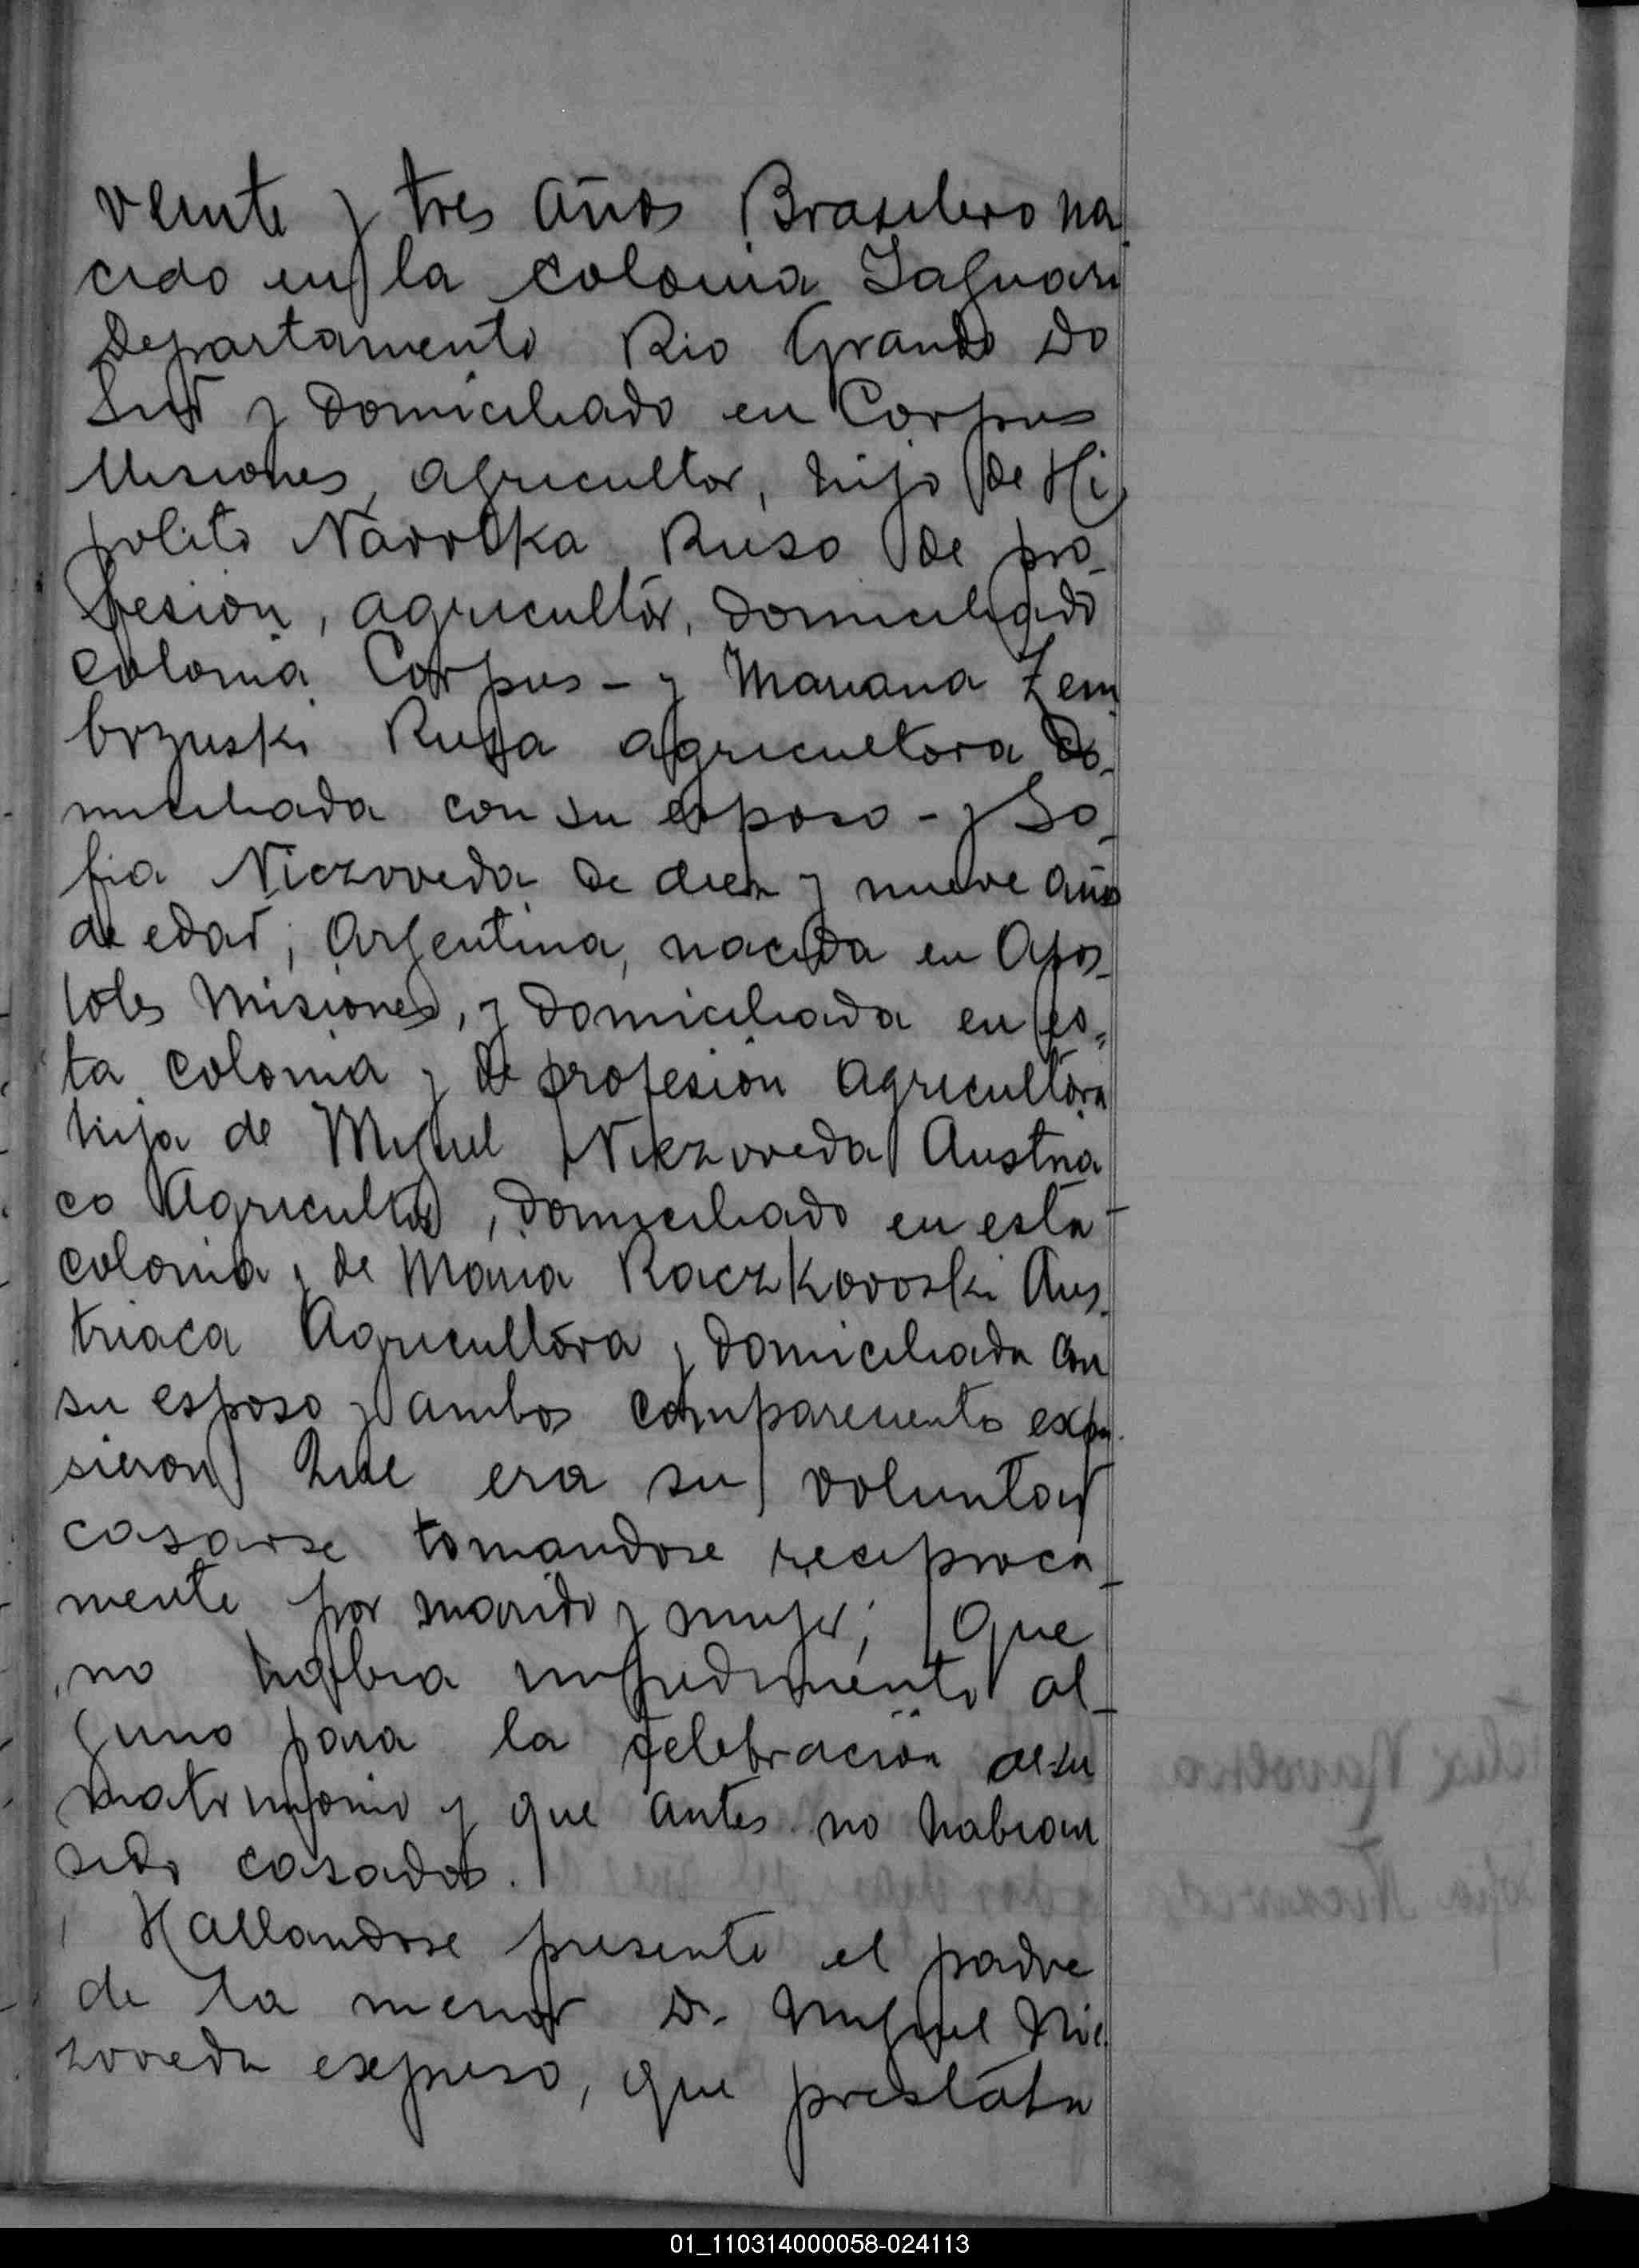 veinte y tres años Brasilero na
cido en la colonia Jaguari
Departamento Rio Grande do
Sud y domiciliado en Corpus
Misiones, agricultor, hijo de Hi
polito Navolka Ruso de pro-
fesion, agricultor, domiciliado
colonia Corpus - y Mariana Zem
brzuski Rusa agricultora do-
miciliada con su esposo - y So-
fia Niezoveda de diez y nueve años
de edad, Argentina, nacida en Apos-
toles Misiones, y domiciliada en es-
ta colonia y de profesion agricultora
hija de Miguel Niezoveda Austria
co Agricultor, domiciliado en esta
colonia y de Maria Raczkovoski Aus-
triaca Agricultora y domiciliada con
su esposo y ambos comparecientes expu-
sieron Que era su voluntad
casarse tomandose reciproca-
mente por marido y mujer; Que
no habia impedimento al-
guno para la celebracion de su
matrimonio y que antes no habian
sido casados.
Hallandose presente el padre
de la menor D. Miguel Nie
zoveda expuso, que prestaba
01_110314000058-024113